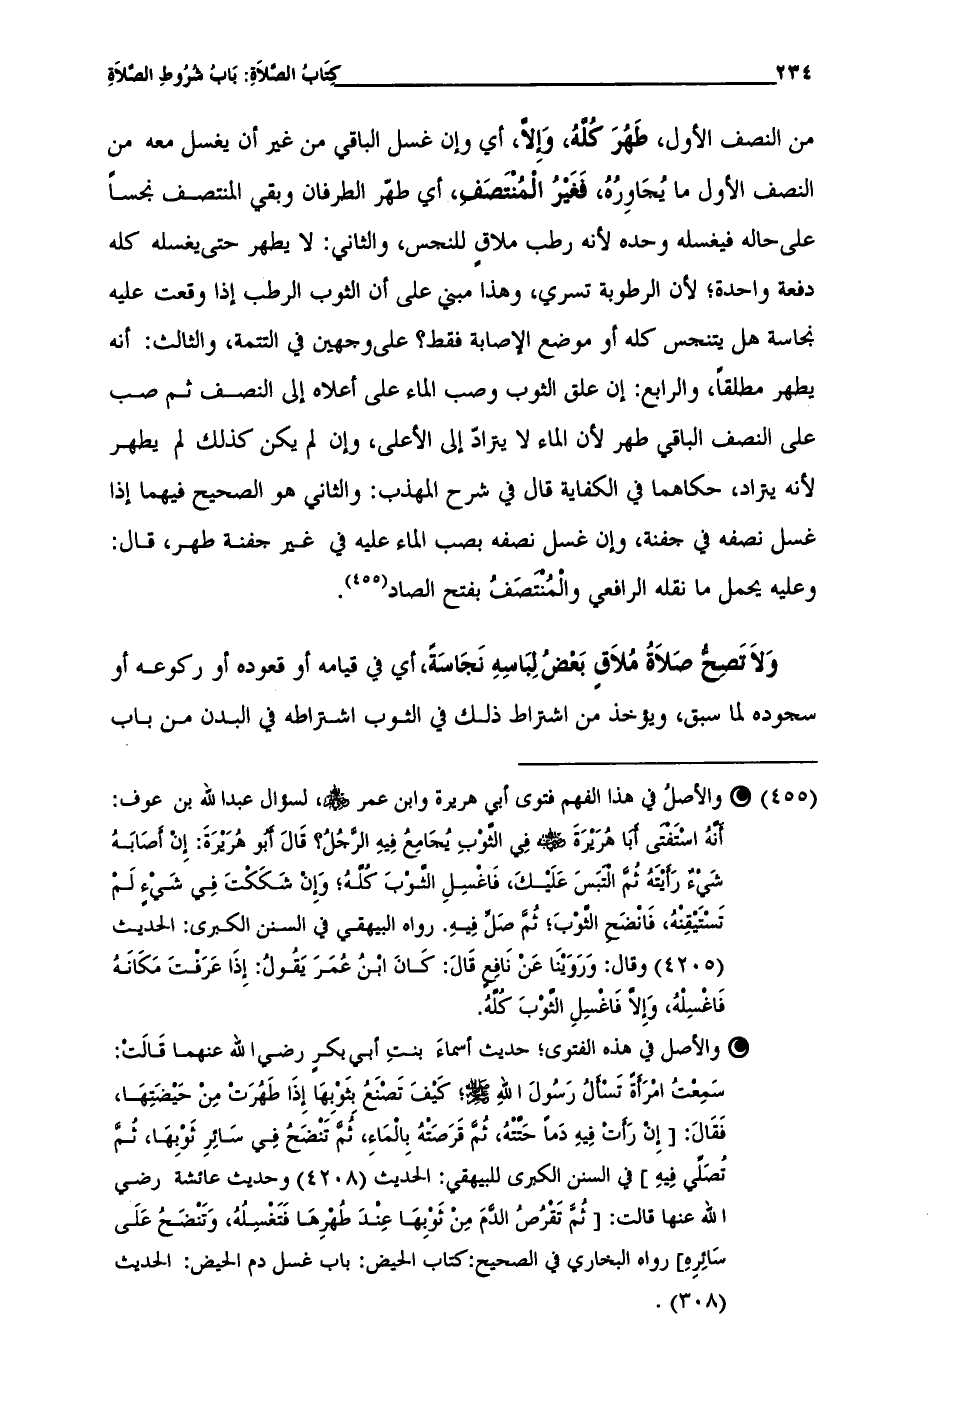 ٢٣٤ كِتَابُ الصَّلاَةِ: بَابُ شُرُوطِ الصَّلاَةِ
من النصف الأول، طَهُرَ كُلُّهُ، وَإِلاَّ، أي وإن غسل الباقي من غير أن يغسل معه من
النصف الأول ما يُجَاوِرُهُ، فَغَيْرُ الْمُنْتَصَفِ، أي طهّر الطرفان وبقي المنتصف نجساً
على حاله فيغسله وحده لأنه رطب ملاقٍ للنجس، والثاني: لا يطهر حتى يغسله كله
دفعة واحدة؛ لأن الرطوبة تسري، وهذا مبني على أن الثوب الرطب إذا وقعت عليه
نجاسة هل يتنجس كله أو موضع الإصابة فقط؟ على وجهين في التتمة، والثالث: أنه
يطهر مطلقاً، والرابع: إن علق الثوب وصب الماء على أعلاه إلى النصف ثم صب
على النصف الباقي طهر لأن الماء لا يترادّ إلى الأعلى، وإن لم يكن كذلك لم يطهر
لأنه يتراد، حكاهما في الكفاية قال في شرح المهذب: والثاني هو الصحيح فيهما إذا
غسل نصفه في جفنة، وإن غسل نصفه بصب الماء عليه في غير جفنة طهر، قال:
وعليه يحمل ما نقله الرافعي والْمُنْتَصَفُ بفتح الصاد(٤٥٥).
وَلاَ تَصِحُّ صَلاَةُ مُلاَقٍ بَعْضُ لِبَاسِهِ نَجَاسَةً، أي في قيامه أو قعوده أو ركوعه أو
سجوده لما سبق، ويؤخذ من اشتراط ذلك في الثوب اشتراطه في البدن من باب
(٤٥٥) والأصلُ في هذا الفهم فتوى أبي هريرة وابن عمر ﷺ، لسؤال عبدالله بن عوف:
أَنَّهُ اسْتَفْتَى أَبَا هُرَيْرَةَ ﷺ فِي الثَّوْبِ يُجَامِعُ فِيهِ الرَّجُلُ؟ قَالَ أَبُو هُرَيْرَةَ: إِنْ أَصَابَهُ
شَيْءٌ رَأَيْتَهُ ثُمَّ الْتَبَسَ عَلَيْكَ، فَاغْسِلِ الثَّوْبَ كُلَّهُ؛ وَإِنْ شَكَكْتَ فِي شَيْءٍ لَمْ
تَسْتَيْقِنْهُ، فَانْضَحِ الثَّوْبَ؛ ثُمَّ صَلِّ فِيهِ. رواه البيهقي في السنن الكبرى: الحديث
(٤٢٠٥) وقال: وَرَوَيْنَا عَنْ نَافِعٍ قَالَ: كَانَ ابْنُ عُمَرَ يَقُولُ: إِذَا عَرَفْتَ مَكَانَهُ
فَاغْسِلْهُ، وَإِلاَّ فَاغْسِلِ الثَّوْبَ كُلَّهُ.
والأصل في هذه الفتوى؛ حديث أسماءَ بنتِ أبي بكرٍ رضي الله عنهما قَالَتْ:
سَمِعْتُ امْرَأَةً تَسْأَلُ رَسُولَ اللهِ ﷺ؛ كَيْفَ تَصْنَعُ بِثَوْبِهَا إِذَا طَهُرَتْ مِنْ حَيْضَتِهَا،
فَقَالَ: [ إِنْ رَأَتْ فِيهِ دَماً حَتَّتْهُ، ثُمَّ قَرَصَتْهُ بِالْمَاءِ، ثُمَّ تَنْضَحُ فِي سَائِرِ ثَوْبِهَا، ثُمَّ
تُصَلِّي فِيهِ ] في السنن الكبرى للبيهقي: الحديث (٤٢٠٨) وحديث عائشة رضي
الله عنها قالت: [ ثُمَّ تَقْرُصُ الدَّمَ مِنْ ثَوْبِهَا عِنْدَ طُهْرِهَا فَتَغْسِلُهُ، وَتَنْضَحُ عَلَى
سَائِرِهِ] رواه البخاري في الصحيح:كتاب الحيض: باب غسل دم الحيض: الحديث
(٣٠٨) .